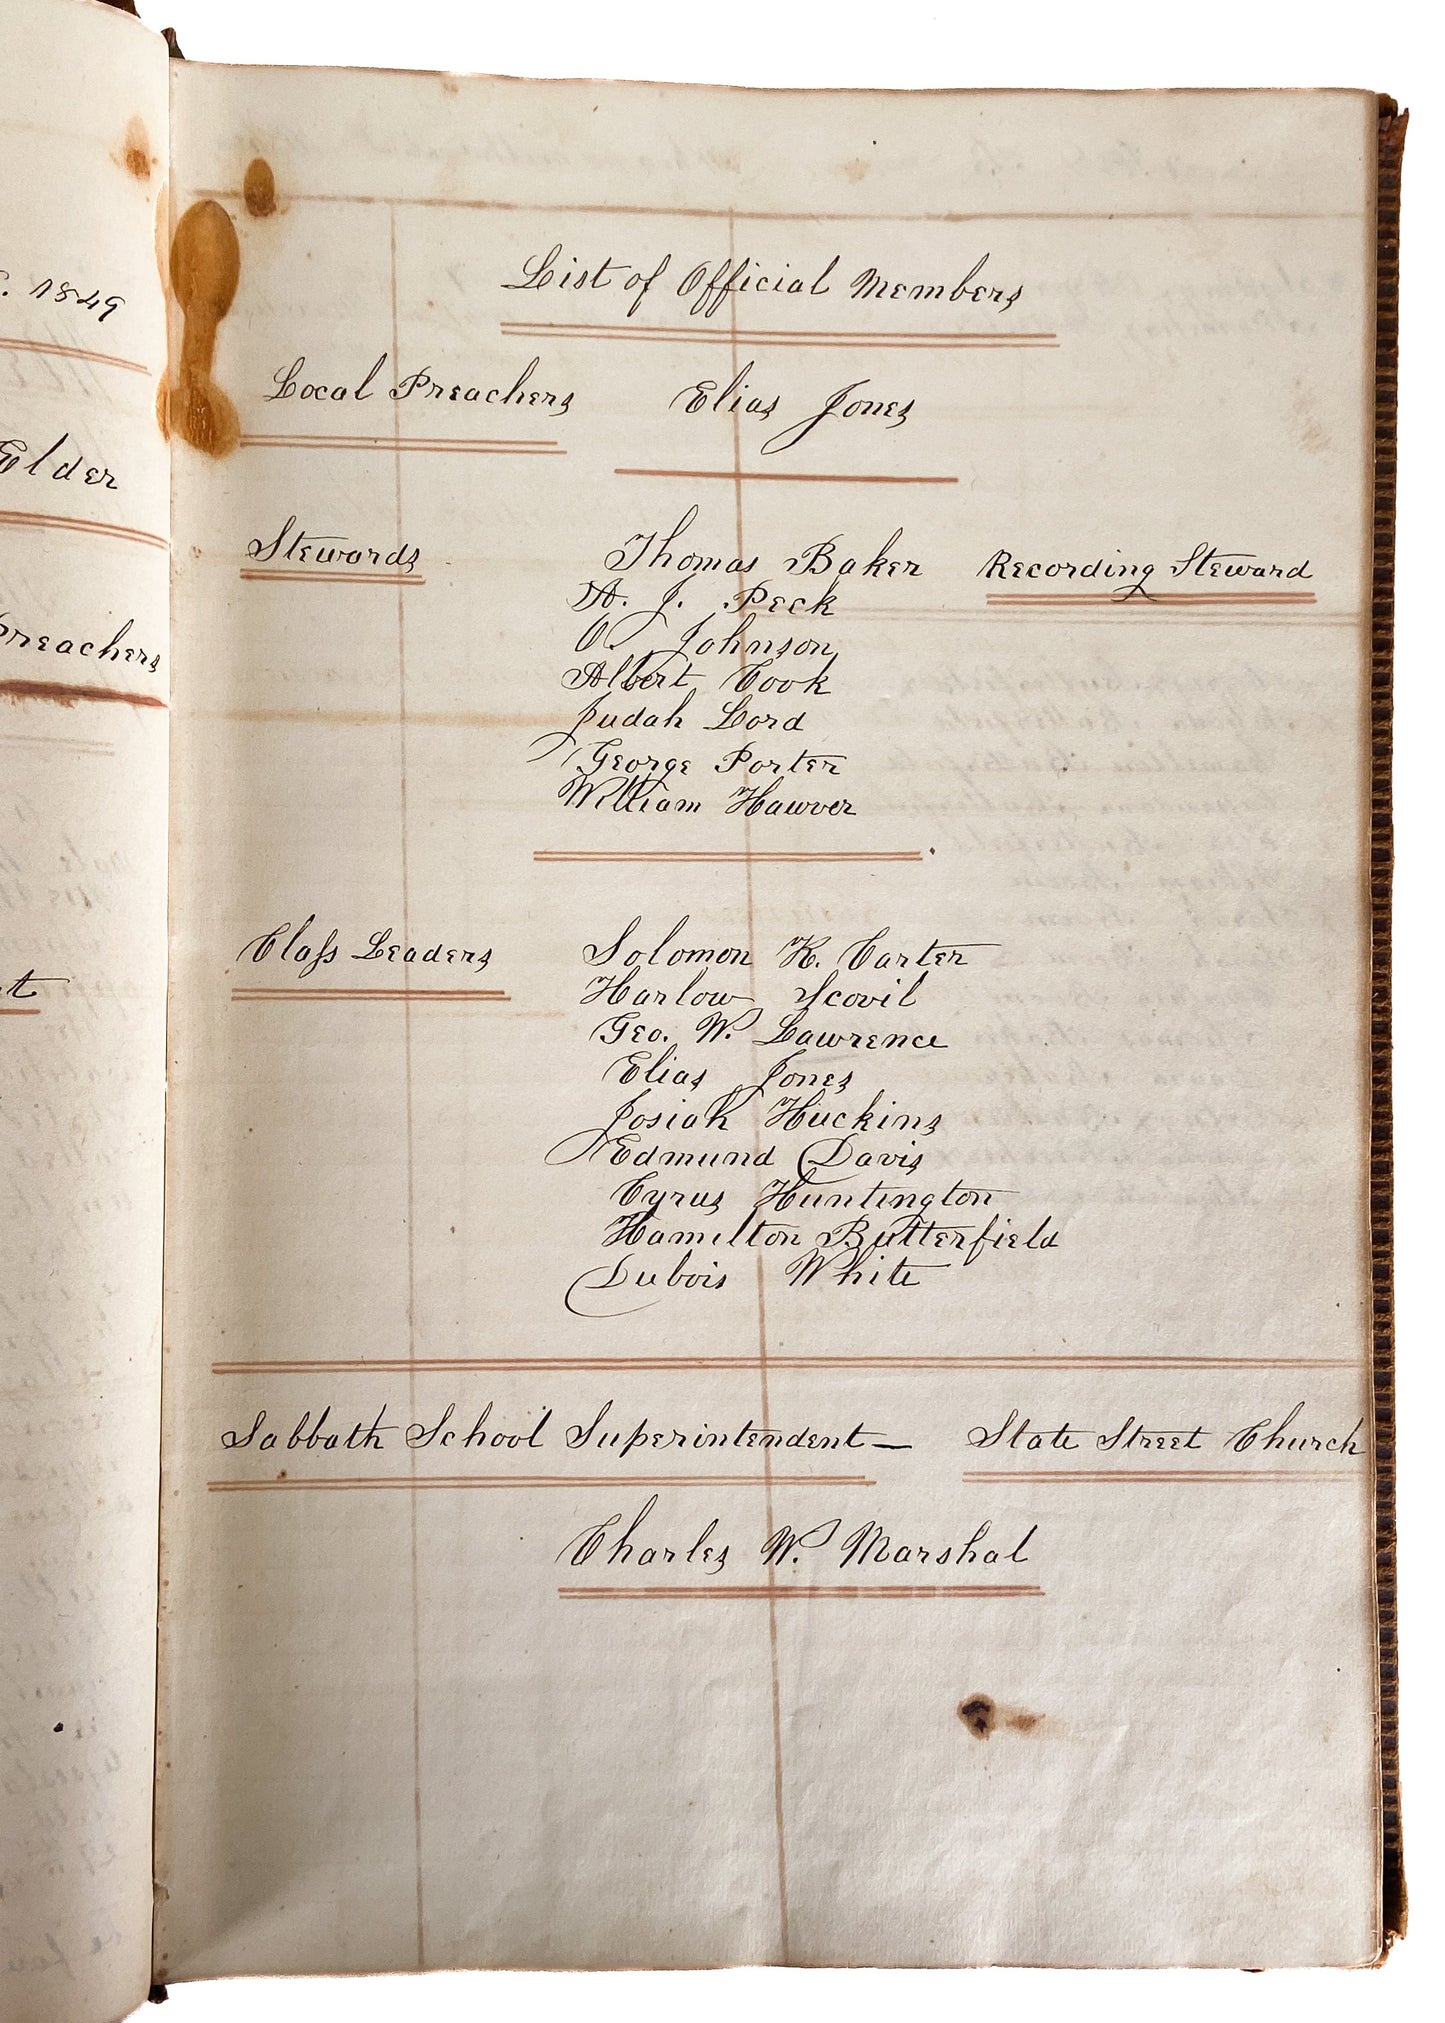 . 1849
Elder
Preachers
List of Official Members
Local Preachers Elias Jones
Stewards Thomas Baker Recording Steward
A. J. Peck
O. Johnson
Albert Cook
Judah Lord
George Porter
William Hawver
Claſs Leaders Solomon K. Carter
Harlow Scovil
Geo. W. Lawrence
Elias Jones
Josiah Huckins
Edmund Davis
Cyrus Huntington
Hamilton Butterfield
Dubois White
Sabbath School Superintendent — State Street Church
Charles W. Marshal